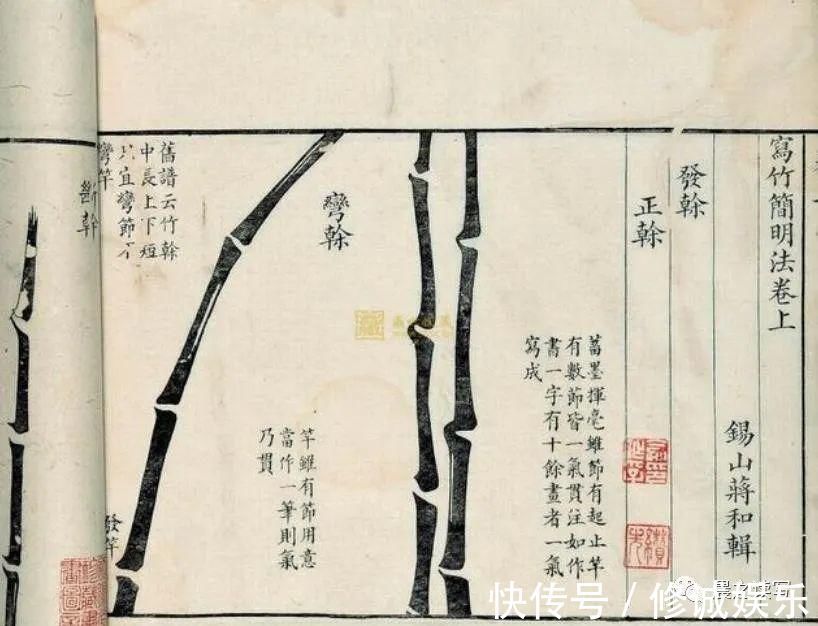 寫竹簡明法卷上
錫山蔣和輯
發榦
正榦
蓄墨揮毫雖節有起止竿
有數節皆一氣貫注如作
書一字有十餘畫者一氣
寫成
彎榦
竿雖有節用意
當作一筆則氣
乃貫
舊譜云竹榦
中長上下短
只宜彎節不
彎竿
發竿
斷榦
快传号／修诚娱乐